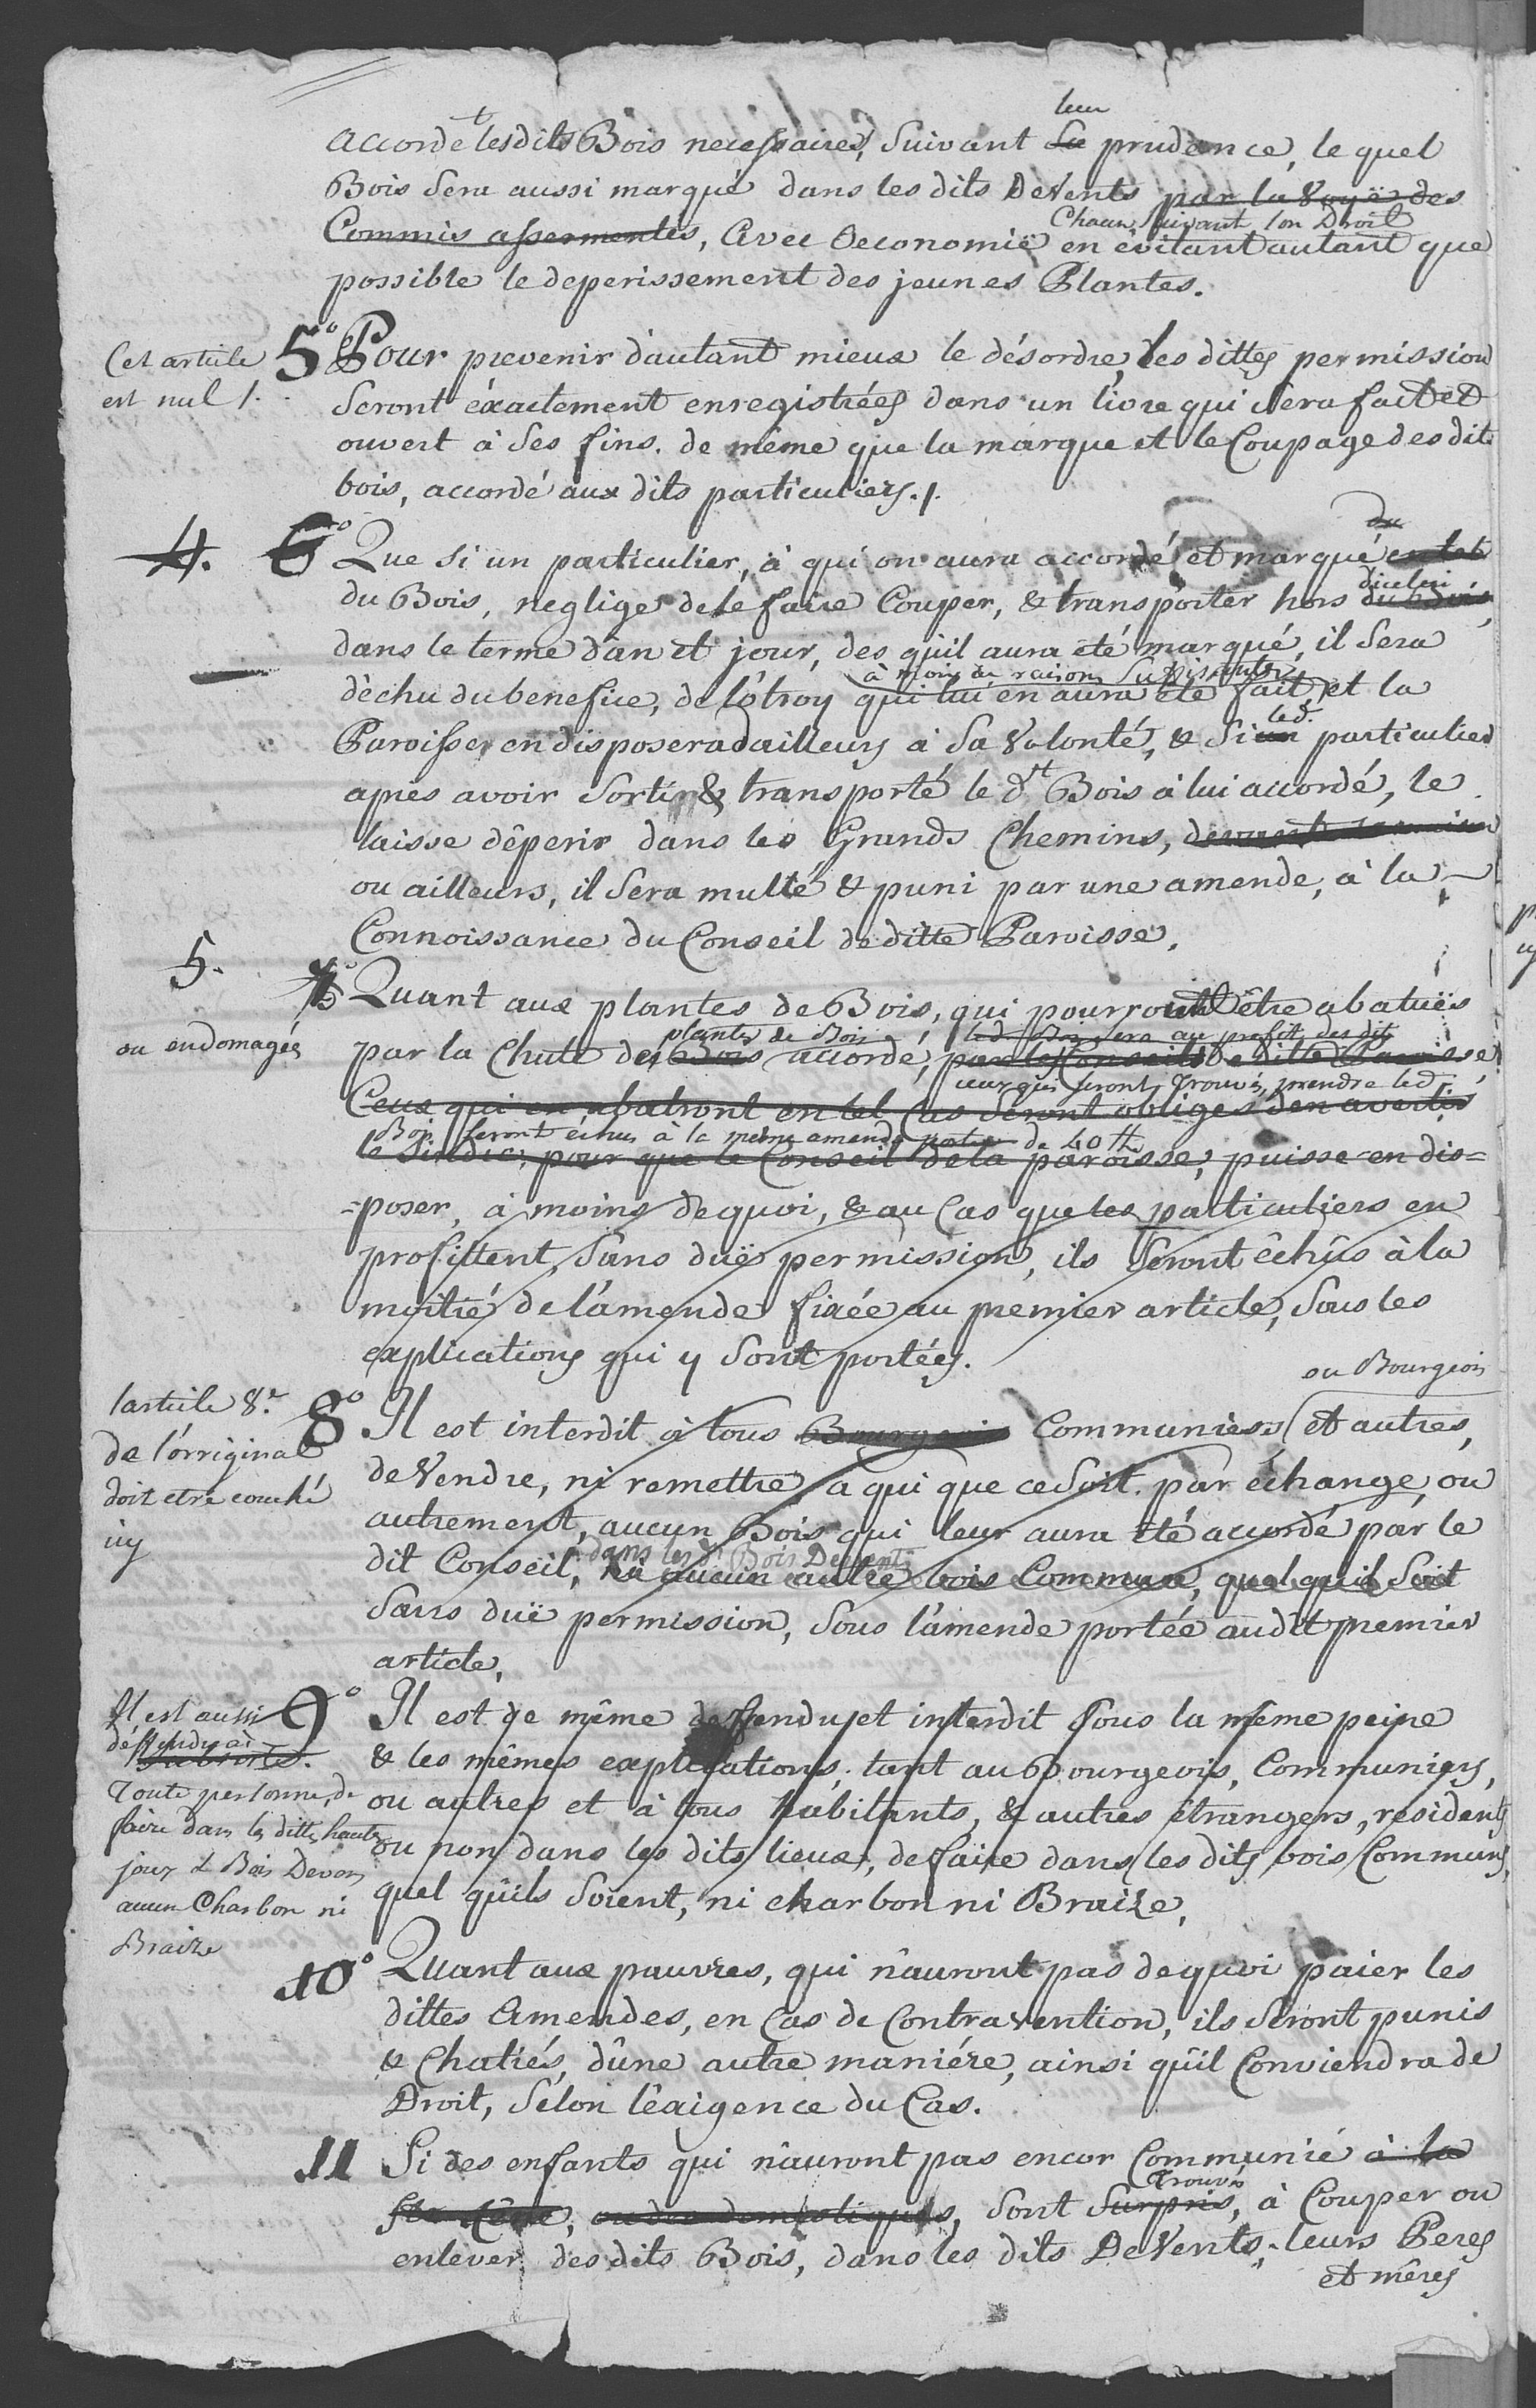 leur
accordet lesdits Bois necessaires, Suivant Sa prudence, le quel
Bois Sera aussi marqué dans les dits DeVents par la Voÿe des
Chacun Suivant son Droit
Commis assermentés, avec Oeconomie en evitant autant que
possible le deperissement des jeunes Plantes.
Cet article
est nul /.
5° Pour prevenir dautant mieux le désordre, les dittes permission
Seront éxactement enregistrées dans un livre qui Sera fait et
ouvert à Ses fins. de même que la marque et le Coupage des dits
bois, accordé aux dits particuliers./.
du
4. 6° Que Si un particulier, à qui on aura accordé et marqué
du Bois, neglige de le faire Couper, & transporter hors du Bois,
d'icelui
dans le terme d'an et jour, des qu'il aura été marqué, il Sera
à moins de raisons Suffisantes
déchu du benefice, de l'otroy qui lui en aura été fait, et la
led.t
Paroisse, en disposera dailleurs à Sa Volonté, & Si un particulier
apres avoir Sortir & transporté le dtt Bois à lui accordé, le
laisse déperir dans les Grands Chemins, devant
ou ailleurs, il Sera multé & puni par une amende, à la
Connoissance du Conseil de ditte Paroisse,
5.
7° Quant aux plantes de Bois, qui pourront être abatuës
ou endomagées
plantes de Bois led. Bois sera au profit des dit
par la Chute des Bois accordé, par les Conseils de ditte Paroisse
ceux qui seront Trouvés prendre led.t
Ceux qui en abatront en tel Cas Seront obligés d'en avertir
Bois Seront échus à la même amende portée de 40 tt
le Sindic, pour que le Conseil de la paroisse, puisse en dis=
=poser, à moins dequoi, & au Cas que les particuliers en
profittent, Sans duë permission, ils Seront échûs à la
moitié de l'amende fixée au premier article, Sous les
explications qui y Sont portées.
ou Bourgeois
l'article 8.e
de l'original
doit etre couché
icy
8° Il est interdit à tous Bourgeois Communiers et autres,
de Vendre, ni remettre, a qui que ce Soit par échange, ou
autrement, aucun Bois qui leur aura été accordé par le
dans les d.t Bois Devent
dit Conseil, ni aucun autre bois Commun, quel qu'il Soit
Sans duë permission, Sous l'amende portée audit premier
article,
Il est aussi
déffendu à
Toute personne, de
faire dans les dittes hautes
joux & Bois Devens
aucun Charbon ni
Braize
9° Il est de même deffendu et interdit Sous la même peine
& les mêmes explications, tant au Bourgeois, Communiers,
ou autres et à tous habitants, & autres étrangers, residents
ou non dans les dits lieux, de faire dans les dits bois Communs,
quel qu'ils Soient, ni charbon ni Braize,
10° Quant aux pauvres, qui n'auront pas dequoi paier les
dittes Amendes, en Cas de Contravention, ils Seront punis
& Chatiés, d'une autre maniére, ainsi qu'il Conviendra de
Droit, Sélon l'éxigence du Cas.
11 Si des enfants qui n'auront pas encor Communié à la
Trouvés
Ste Céne, ou des domestiques, Sont Surpris, à Couper ou
enlever, des dits Bois, dans les dits DeVents, leurs Peres
et mêres